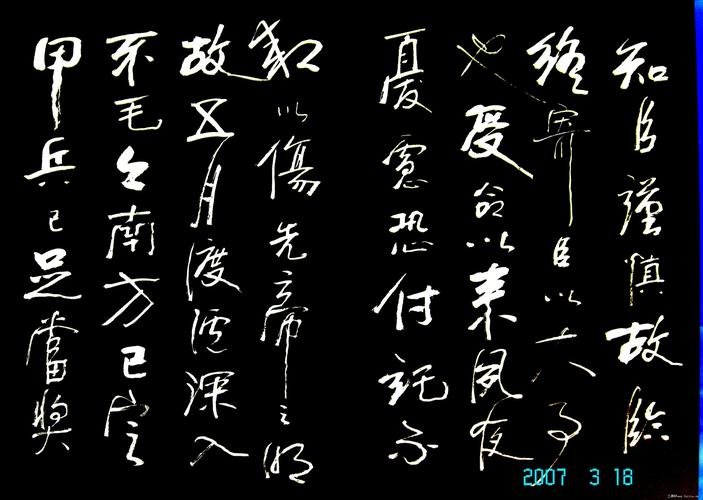 知臣謹慎故臨
終寄臣以大事
也受命以来夙夜
憂慮恐付託不
効以傷先帝之明
故五月渡瀘深入
不毛今南方已定
甲兵已足當獎
2007 3 18